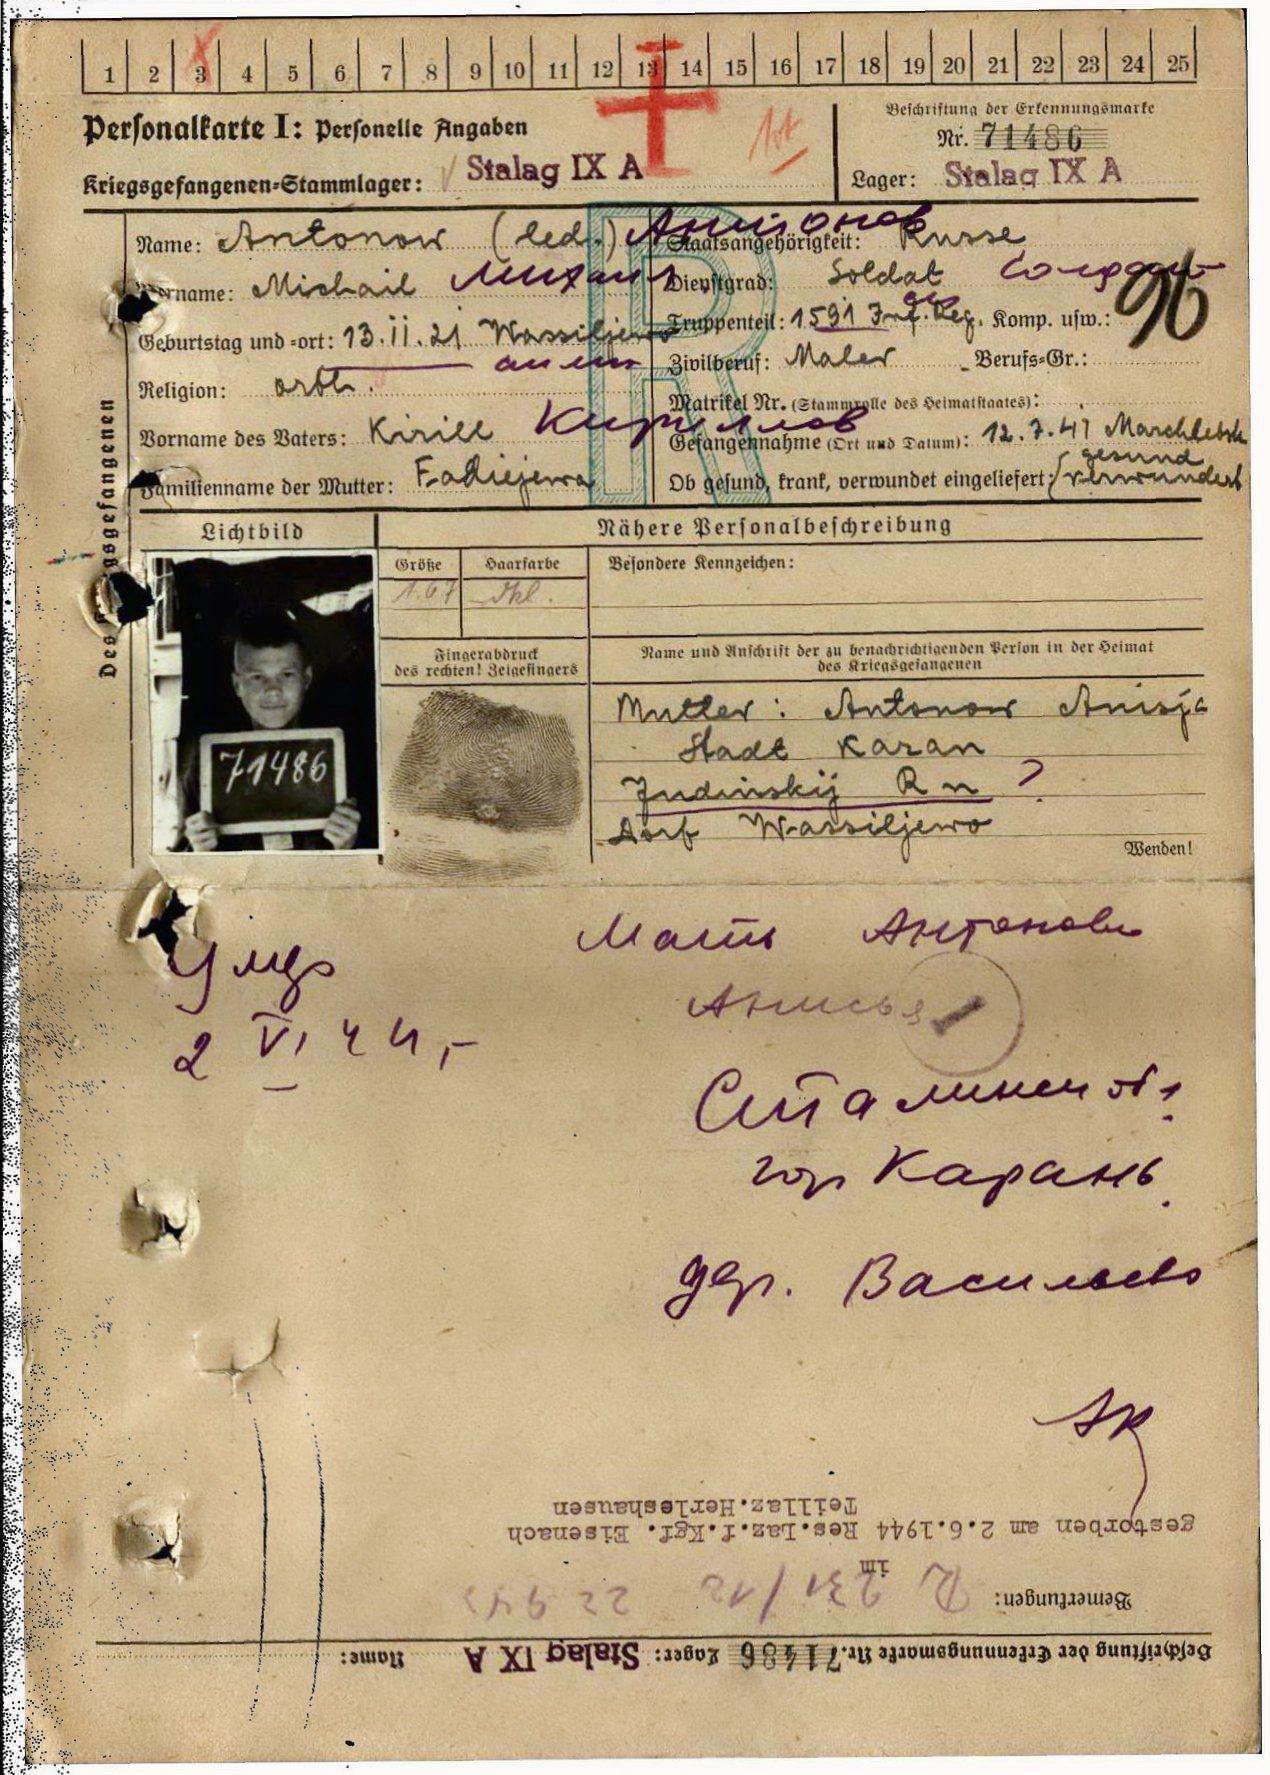 1 2 3 4 5 6 7 8 9 10 11 12 13 14 15 16 17 18 19 20 21 22 23 24 25
Personalkarte I: Personelle Angaben
Kriegsgefangenen-Stammlager: Stalag IX A
Beschriftung der Erkennungsmarke
Nr. 71486
Lager: Stalag IX A
Des Kriegsgefangenen
Name: Antonow (led.) Антонов
Vorname: Michail Михаил
Geburtstag und -ort: 13.II.21 Wassiljewo
Religion: orth.
Vorname des Vaters: Kirill Кириллов
Familienname der Mutter: Fadiejewa
Staatsangehörigkeit: Russe
Dienstgrad: Soldat Солдат
Truppenteil: 1591 Inf. Reg. Komp. usw.:
96
Zivilberuf: Maler Berufs-Gr.:
Matrikel Nr. (Stammrolle des Heimatstaates):
Gefangennahme (Ort und Datum): 12.7.41 Marchlebsk
Ob gesund, krank, verwundet eingeliefert: gesund
verwundet
Lichtbild
71486
Nähere Personalbeschreibung
Größe Haarfarbe Besondere Kennzeichen:
1.67 dkl.
Fingerabdruck
des rechten! Zeigefingers
Name und Anschrift der zu benachrichtigenden Person in der Heimat
des Kriegsgefangenen
Mutter: Antonow Anisja
Stadt Karan
Judinskij R n ?
Dorf Wassiljewo
Wenden!
Мать Антонова
Анисья
Умер
2 VI 44,-
Сталинск об.
гор Карань
дер. Васильево
gestorben am 2.6.1944 Res.Laz.f.Kgf. Eisenach
Teillaz.Herleshausen
im
Bemerkungen:
Beschriftung der Erkennungsmarke Nr. 71486 Lager: Stalag IX A Name: